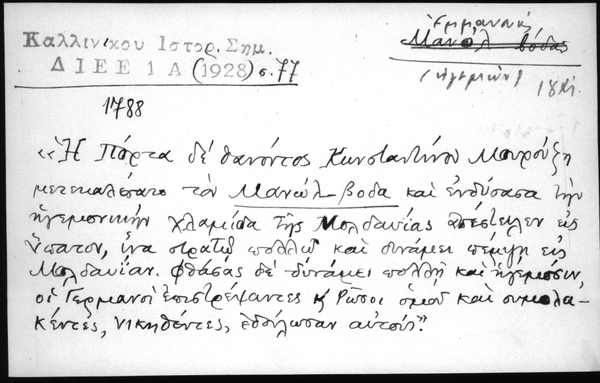 Καλλινίκου Ιστορ. Σημ.
ΔΙΕΕ 1 Α (1928) σ. 77
Ἐμμανουὴλ
Μανὸλ βόδας
(ἡγεμὼν) 18
1788
«Ἡ Πόρτα δέ θανόντος Κωνσταντίνου Μουρούζη
μετεκαλέσατο τὸν Μανώλ-βοδα καὶ ἐνδύσασα τὴν
ἡγεμονικὴν χλαμίδα τῆς Μολδαυίας ἀπέστειλεν εἰς
ἵνα στρατῷ πολλῷ καὶ δυνάμει πέμψῃ εἰς
Μολδαυίαν. φθάσας δὲ δυνάμει πολλῇ καὶ
οἱ Γερμανοὶ ἐπιστρέψαντες κ Ρῶσοι ὁμοῦ καὶ συμπλα-
κέντες, νικηθέντες, αὐτούς».